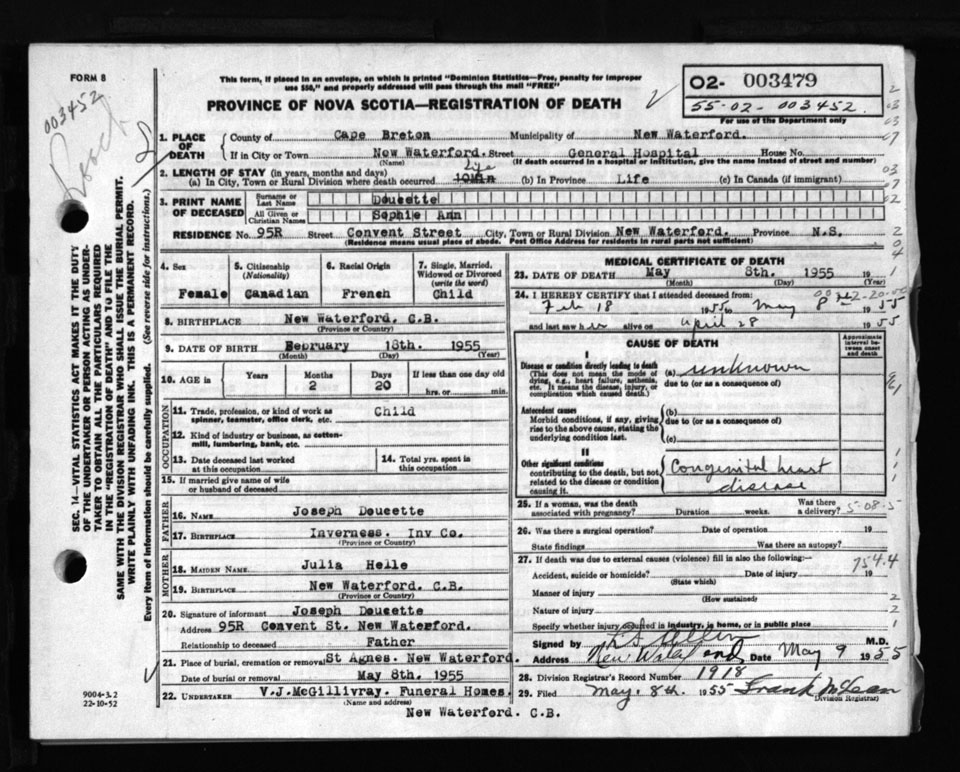 FORM 8
This form, if placed in an envelope, on which is printed "Dominion Statistics—Free, penalty for improper
use $50," and properly addressed will pass through the mail "FREE"
PROVINCE OF NOVA SCOTIA—REGISTRATION OF DEATH
02- 003479
55-02-003452
For use of the Department only
003452
SEC. 14—VITAL STATISTICS ACT MAKES IT THE DUTY
OF THE UNDERTAKER OR PERSON ACTING AS UNDER-
TAKER TO OBTAIN ALL THE PARTICULARS REQUIRED
IN THE "REGISTRATION OF DEATH" AND TO FILE THE
SAME WITH THE DIVISION REGISTRAR WHO SHALL ISSUE THE BURIAL PERMIT.
WRITE PLAINLY WITH UNFADING INK. THIS IS A PERMANENT RECORD.
Every item of information should be carefully supplied. (See reverse side for instructions.)
1. PLACE OF DEATH
County of Cape Breton Municipality of New Waterford.
If in City or Town New Waterford. Street General Hospital House No.
(Name) (If death occurred in a hospital or institution, give the name instead of street and number)
2. LENGTH OF STAY (in years, months and days)
(a) In City, Town or Rural Division where death occurred (b) In Province Life (c) In Canada (if immigrant)
3. PRINT NAME OF DECEASED
Surname or Last Name Doucette
All Given or Christian Names Sophie Ann
RESIDENCE No. 95R Street Convent Street City, Town or Rural Division New Waterford. Province N.S.
(Residence means usual place of abode. Post Office Address for residents in rural parts not sufficient)
4. Sex Female
5. Citizenship (Nationality) Canadian
6. Racial Origin French
7. Single, Married, Widowed or Divorced (write the word) Child
8. BIRTHPLACE New Waterford, C.B.
(Province or Country)
9. DATE OF BIRTH February 18th. 1955
(Month) (Day) (Year)
10. AGE in Years Months 2 Days 20 If less than one day old hrs. or min.
OCCUPATION
11. Trade, profession, or kind of work as spinner, teamster, office clerk, etc. Child
12. Kind of industry or business, as cotton-mill, lumbering, bank, etc.
13. Date deceased last worked at this occupation
14. Total yrs. spent in this occupation
15. If married give name of wife or husband of deceased
FATHER
16. NAME Joseph Doucette
17. BIRTHPLACE Inverness. Inv Co.
(Province or Country)
MOTHER
18. MAIDEN NAME Julia Helle
19. BIRTHPLACE New Waterford. C.B.
(Province or Country)
20. Signature of informant Joseph Doucette
Address 95R Convent St. New Waterford.
Relationship to deceased Father
21. Place of burial, cremation or removal St Agnes. New Waterford.
Date of burial or removal May 8th. 1955
22. UNDERTAKER V.J.McGillivray. Funeral Homes.
(Name and address)
New Waterford. C.B.
9004-3.2
22-10-52
MEDICAL CERTIFICATE OF DEATH
23. DATE OF DEATH May 8th. 1955
(Month) (Day) (Year)
24. I HEREBY CERTIFY that I attended deceased from
Feb 18 1955 to May 8 1955
and last saw her alive on April 28 1955
CAUSE OF DEATH
Approximate interval between onset and death
I
Disease or condition directly leading to death
(This does not mean the mode of dying, e.g., heart failure, asthenia, etc. It means the disease, injury, or complication which caused death.)
(a) unknown
due to (or as a consequence of)
Antecedent causes
Morbid conditions, if any, giving rise to the above cause, stating the underlying condition last.
(b)
due to (or as a consequence of)
(c)
II
Other significant conditions
contributing to the death, but not related to the disease or condition causing it.
Congenital heart
disease
25. If a woman, was the death associated with pregnancy? Duration weeks. Was there a delivery?
26. Was there a surgical operation? Date of operation 19
State findings Was there an autopsy?
27. If death was due to external causes (violence) fill in also the following:
754.4
Accident, suicide or homicide? Date of injury 19
(State which)
Manner of injury
(How sustained)
Nature of injury
Specify whether injury occurred in industry, in home, or in public place
Signed by M.D.
Address New Waterford Date May 9 1955
28. Division Registrar's Record Number 1918
29. Filed May. 8th. 1955 Frank McLean
(Division Registrar)